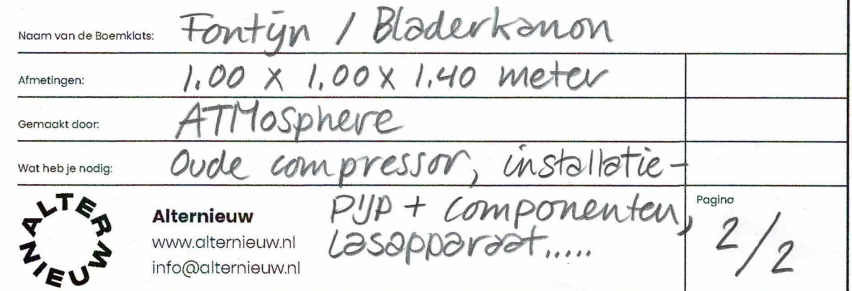 Naam van de Boemklats: Fontijn / Bladerkanon
Afmetingen: 1.00 x 1.00 x 1.40 meter
Gemaakt door: ATMosphere
Wat heb je nodig: Oude compressor, installatie-
pijp + componenten,
Lasapparaat.....
ALTER NIEUW
Alternieuw
www.alternieuw.nl
info@alternieuw.nl
Pagina
2/2